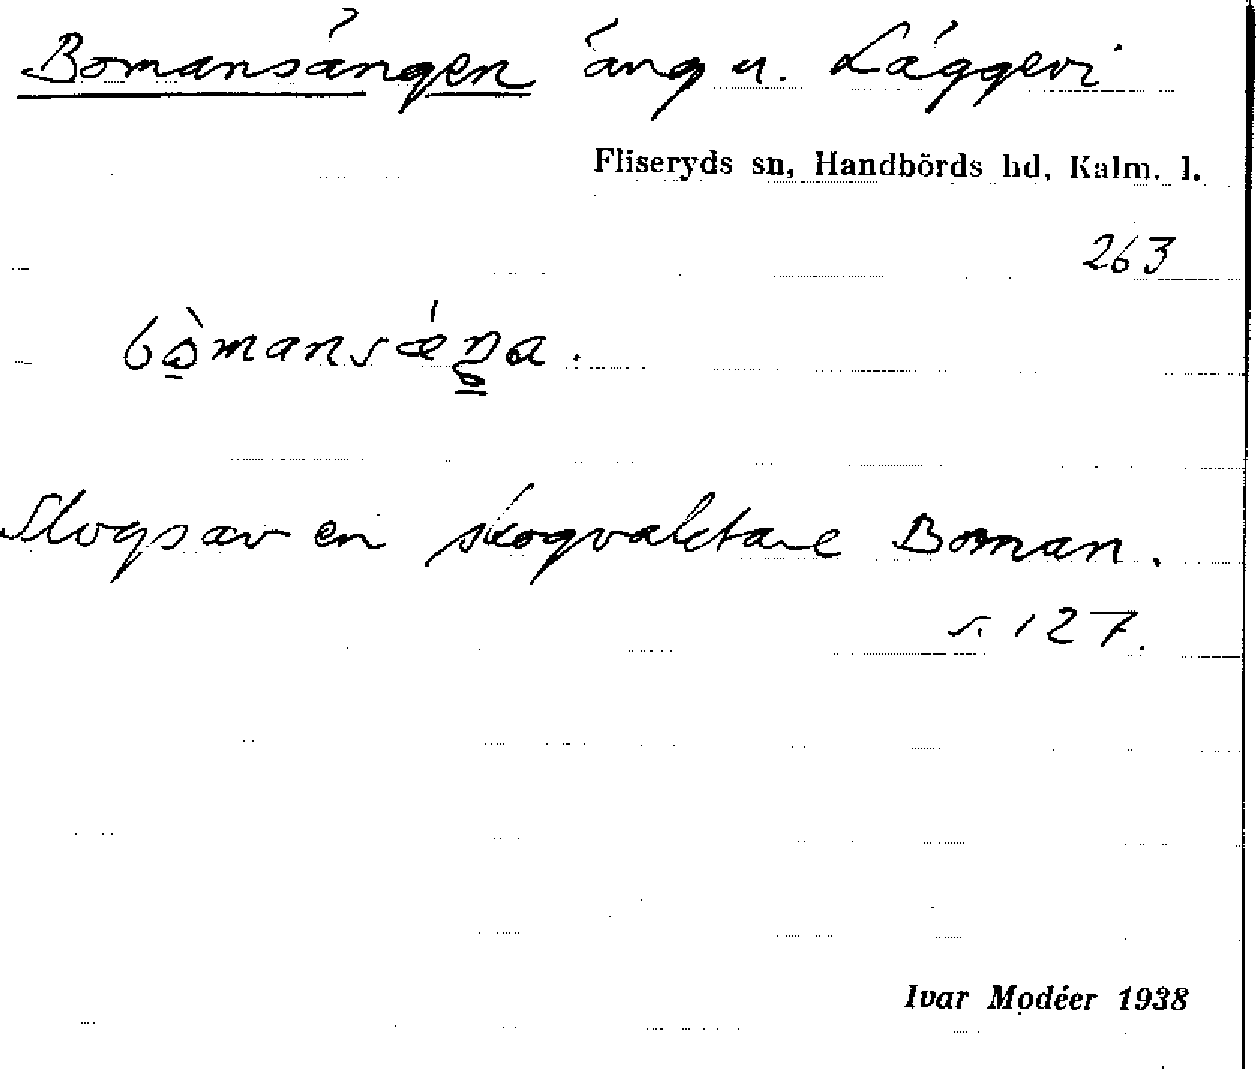 Bomansängen äng u. Läggevi
Fliseryds sn, Handbörds hd, Kalm. l.
263
bò̱mansæ´ŋa.
Slogs av en skogvaktare Boman.
s. 127.
Ivar Modéer 1938